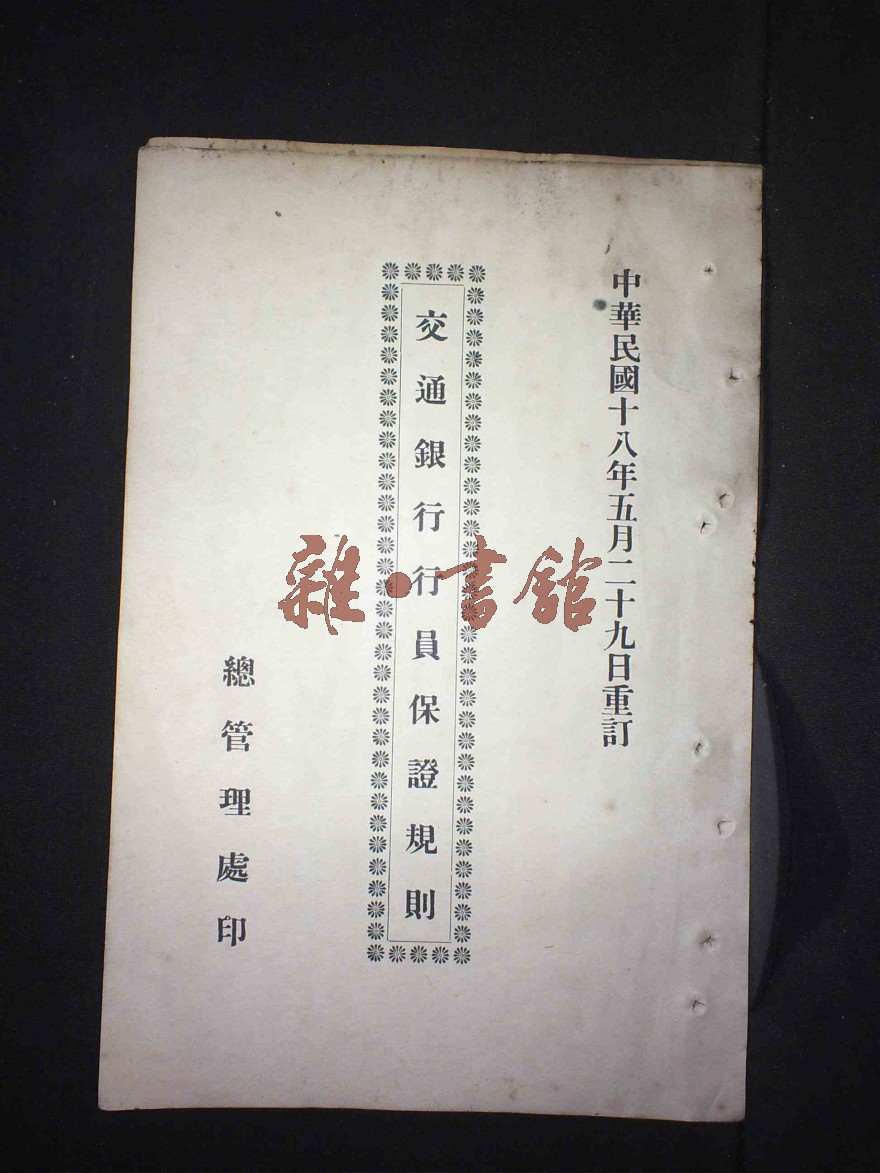 中華民國十八年五月二十九日重訂
交通銀行行員保證規則
總管理處印
雜·書館